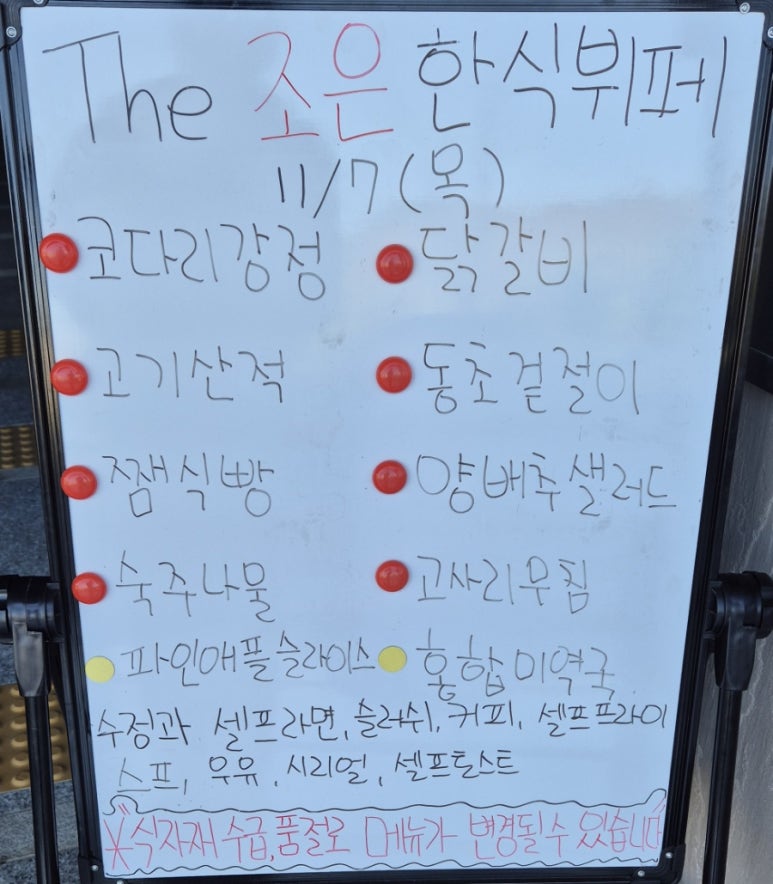 The 조은 한식뷔페
11/7 (목)
코다리강정 닭갈비
고기산적 동초겉절이
쨈식빵 양배추샐러드
숙주나물 고사리무침
파인애플슬라이스 홍합미역국
수정과 셀프라면, 슬러쉬, 커피, 셀프프라이
스프, 우유, 시리얼, 셀프토스트
※식자재 수급,품절로 메뉴가 변경될수 있습니다